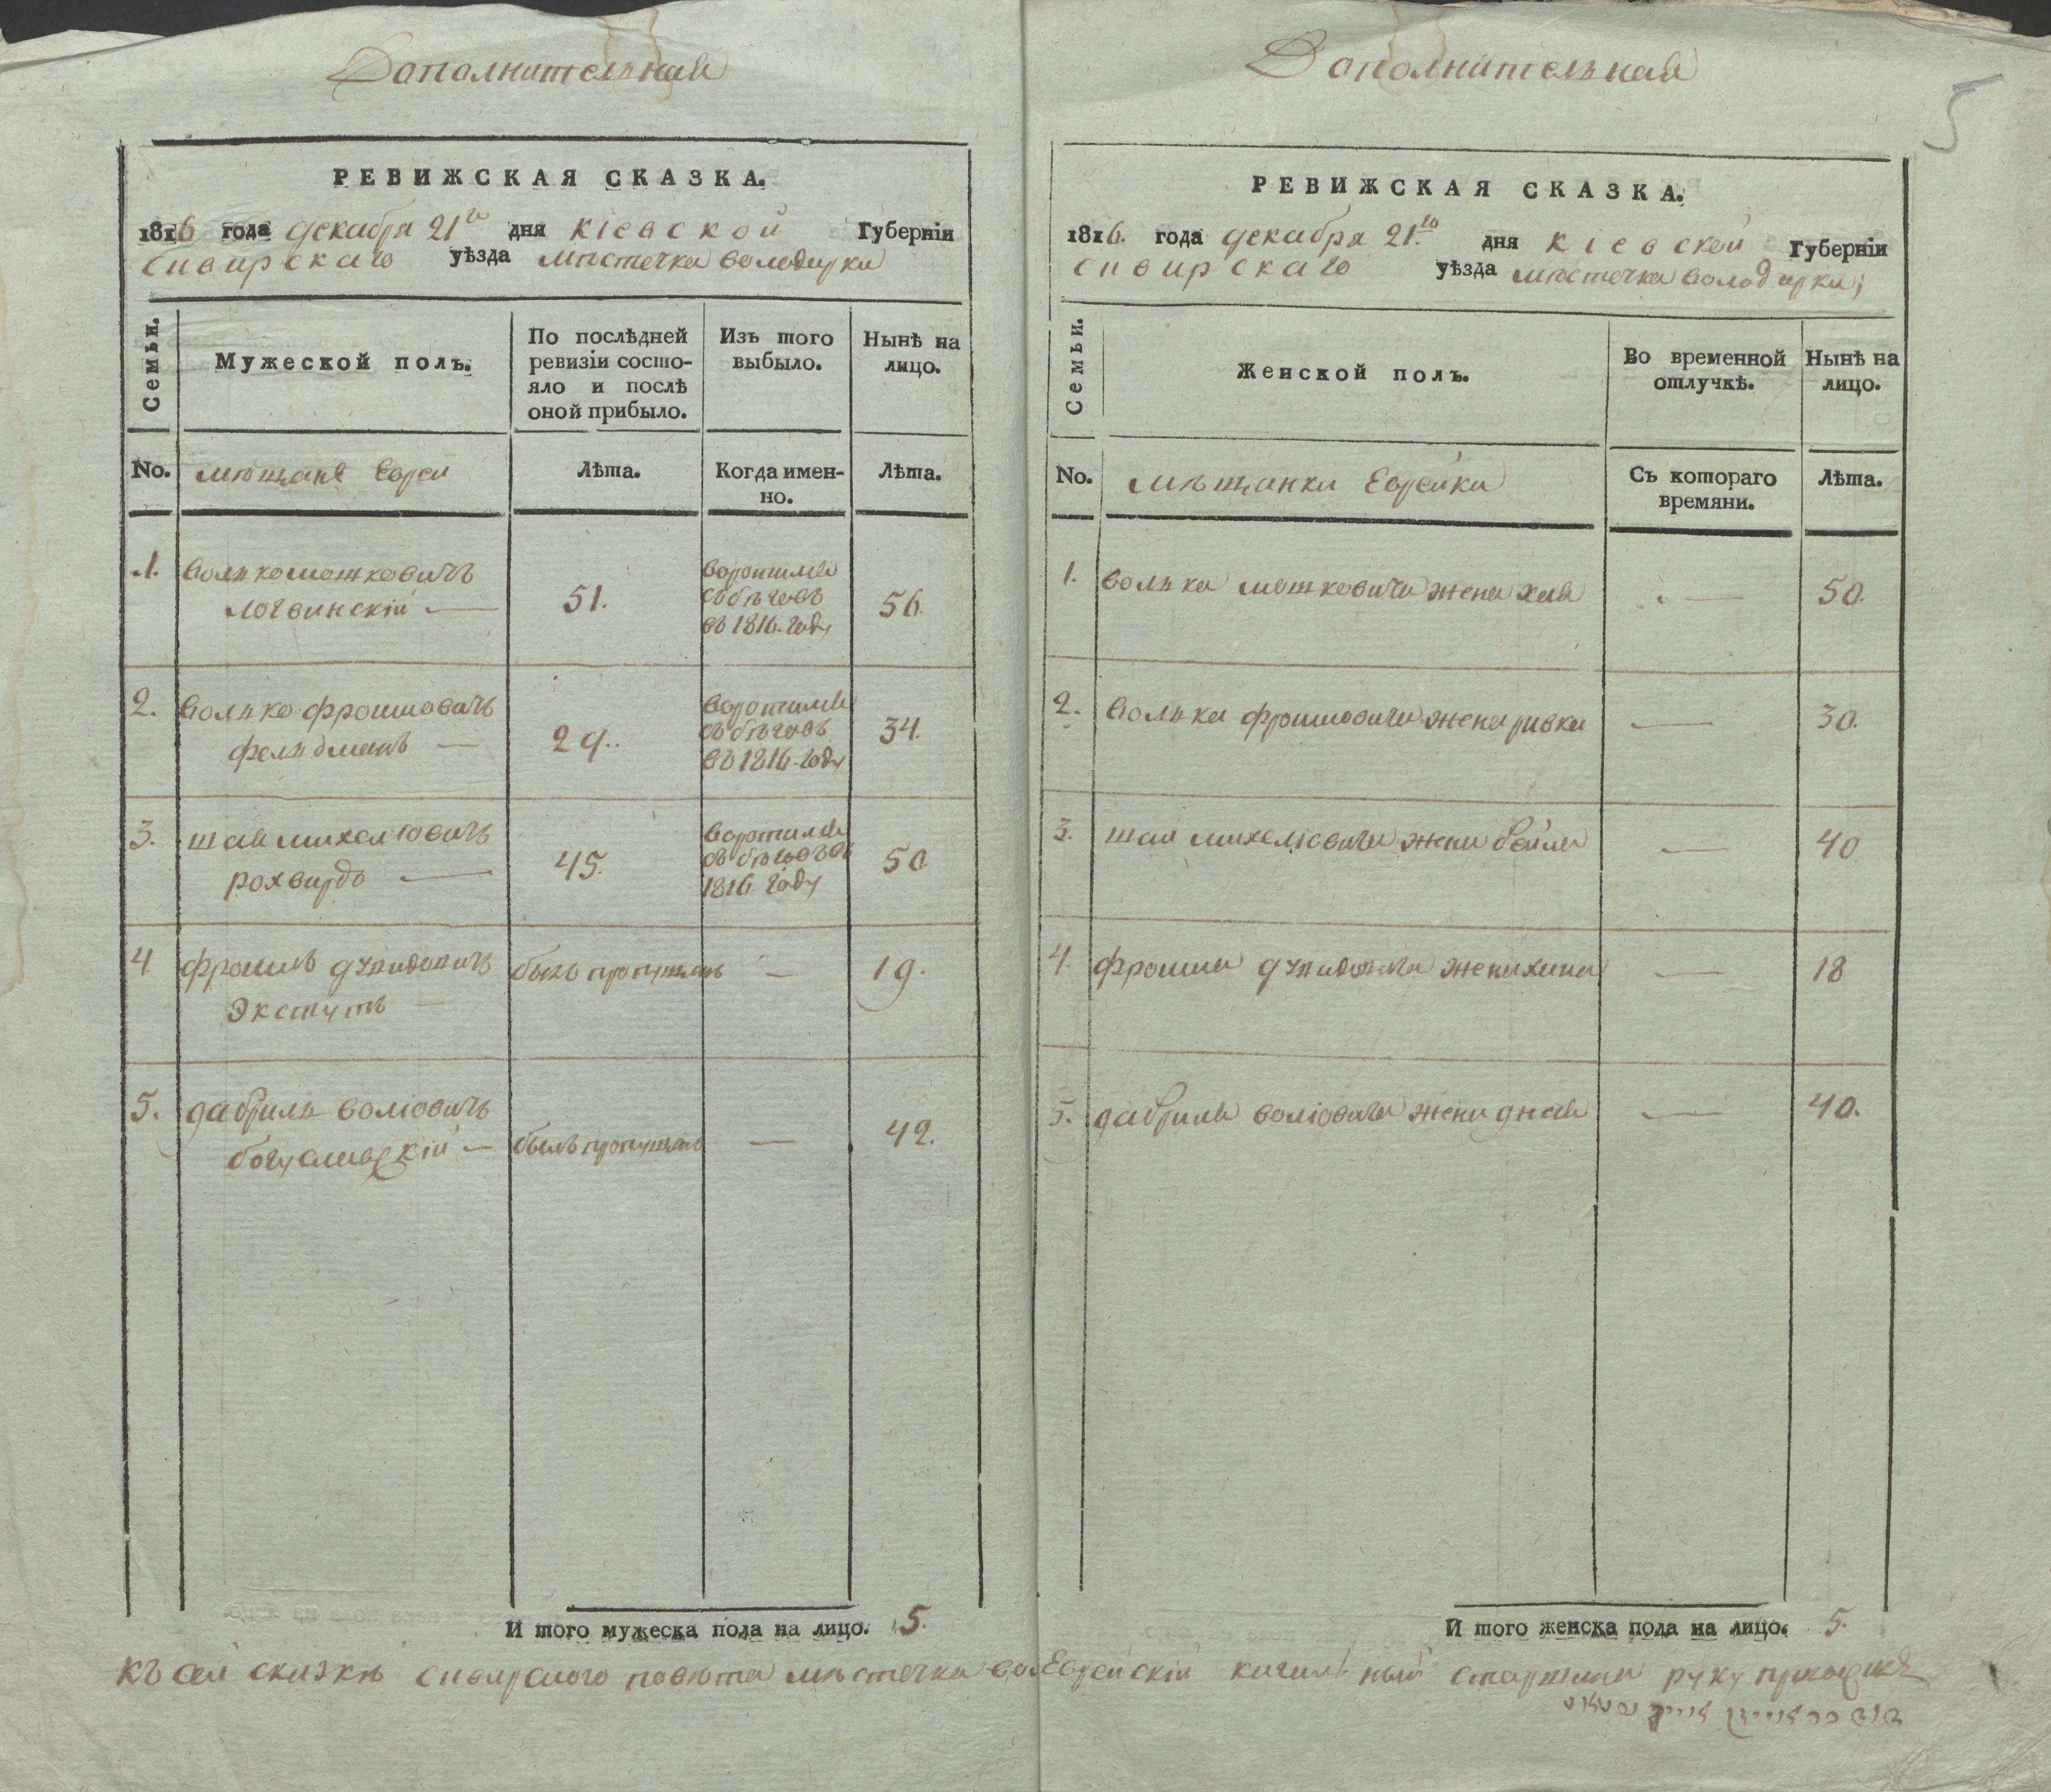 Дополнительная
РЕВИЖСКАЯ СКАЗКА.
1816 года декабря 21го дня кіевской Губерніи
сквирскаго уѣзда мѣстечка володарки
Семьи.
Мужеской полъ.
По послѣдней ревизіи состояло и послѣ оной прибыло.
Изъ того выбыло.
Нынѣ на лицо.
No. мѣщане Евреи
Лѣта.
Когда именно.
Лѣта.
1. волько мошковичъ
логвинскій — 51. воротился съ бѣговъ въ 1816 году 56.
2. волько фроимовичъ
фельдманъ — 29. воротился съ бѣговъ въ 1816 году 34.
3. шая михелювичъ
рохвардъ — 45. воротился съ бѣговъ въ 1816 году 50
4 фроимъ
былъ пропущенъ — 19.
5. габриль воліовичъ
богуславскій — былъ пропущенъ — 42.
И того мужеска пола на лицо. 5.
къ сей сказкѣ сквирского повѣта мѣстечка
Дополнительная
5
РЕВИЖСКАЯ СКАЗКА.
1816. года декабря 21.го дня кіевской Губерніи
сквирскаго уѣзда мѣстечка володарки;
Семьи.
Женской полъ.
Во временной отлучкѣ.
Нынѣ на лицо.
No. мѣщанки Еврейки
Съ котораго времяни.
Лѣта.
1. волька мошковича жена хая — 50.
2. волька фроимовича жена ривка — 30.
3. шаи михеліовича жена бейла — 40
4. фроима жена хана — 18
5. габриля воліовича жена — 40.
И того женска пола на лицо. 5.
Еврейскій кагальный старшина руку приложилъ